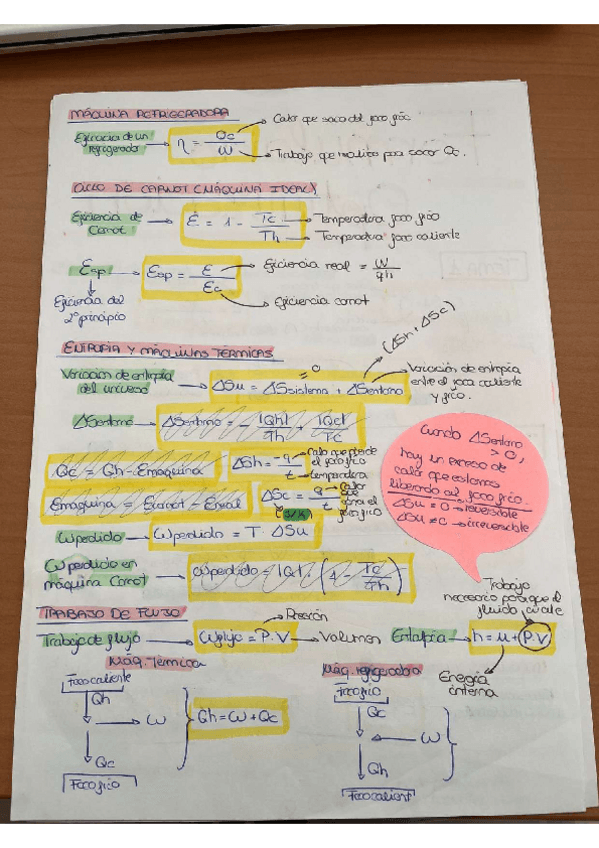 MÁQUINA REFRIGERADORA
Eficiencia de un refrigerador → η = Qc / W
Calor que saco del foco frío
Trabajo que realizo para sacar Qc.
CICLO DE CARNOT (MÁQUINA IDEAL)
Eficiencia de Carnot → Ɛ = 1 - Tc / Th
Temperatura foco frío
Temperatura foco caliente
Ɛsp → Ɛsp = Ɛ / Ɛc
Eficiencia real = W / qh
Eficiencia carnot
Eficiencia del 2º principio
ENTROPÍA Y MÁQUINAS TÉRMICAS
(ΔSh + ΔSc)
= 0
Variación de entropía del universo → ΔSu = ΔSsistema + ΔSentorno
Variación de entropía entre el foco caliente y frío.
ΔSentorno → ΔSentorno = - |Qh| / Th + |Qc| / Tc
Qc = Qh - Emaquina
ΔSh = -q / t
el foco
temperatura
Emaquina = Ecarnot - Ereal
ΔSc = q / t
Calor que
el foco frío
(J/K)
Cuando ΔSentorno > 0,
hay un exceso de
calor que estamos
liberando al foco frío.
ΔSu = 0 → reversible
ΔSu ≠ 0 → irreversible
Wperdido → Wperdido = T · ΔSu
Wperdido en máquina Carnot → Wperdido = |Qh| · (1 - Tc / Th)
Trabajo
necesario para que el
fluido circule
TRABAJO DE FLUJO
Presión
Trabajo de flujo → Wflujo = P.V → Volumen
Entalpía → h = u + P.V
Energía interna
Máq. Térmica
Foco caliente
Qh
W
Qc
Foco frío
Qh = W + Qc
Máq. refrigeradora
Foco frío
Qc
W
Qh
Foco calient